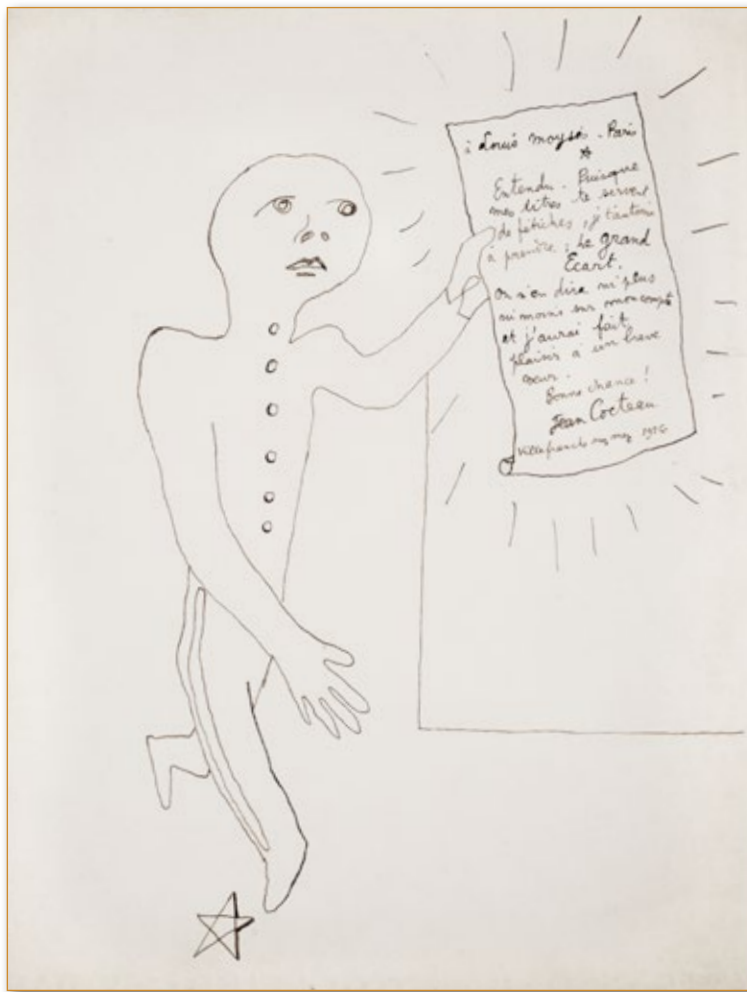 à Louis Moysès - Paris
Entendu. Puisque
mes titres te servent
de fétiches, j't'autorise
à prendre : Le Grand
Écart.
On n'en dira ni plus
ni moins sur mon compte
et j'aurai fait
plaisir à un brave
cœur.
Bonne chance !
Jean Cocteau
Villefranche 1926